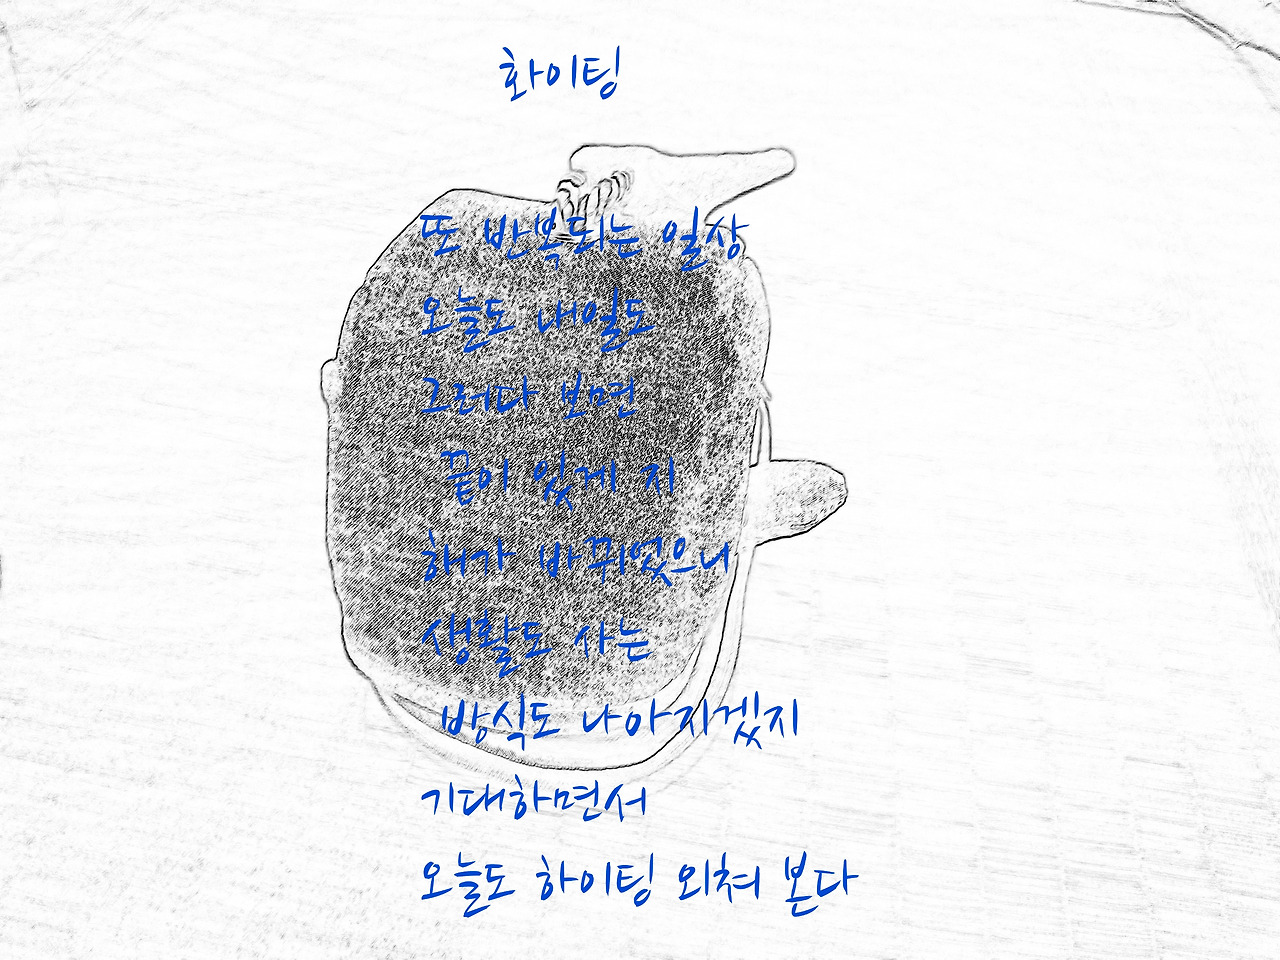 화이팅
또 반복되는 일상
오늘도 내일도
그러다 보면
끝이 있게 지
해가 바뀌었으니
생활도 사는
방식도 나아지겠지
기대하면서
오늘도 하이팅 외쳐 본다